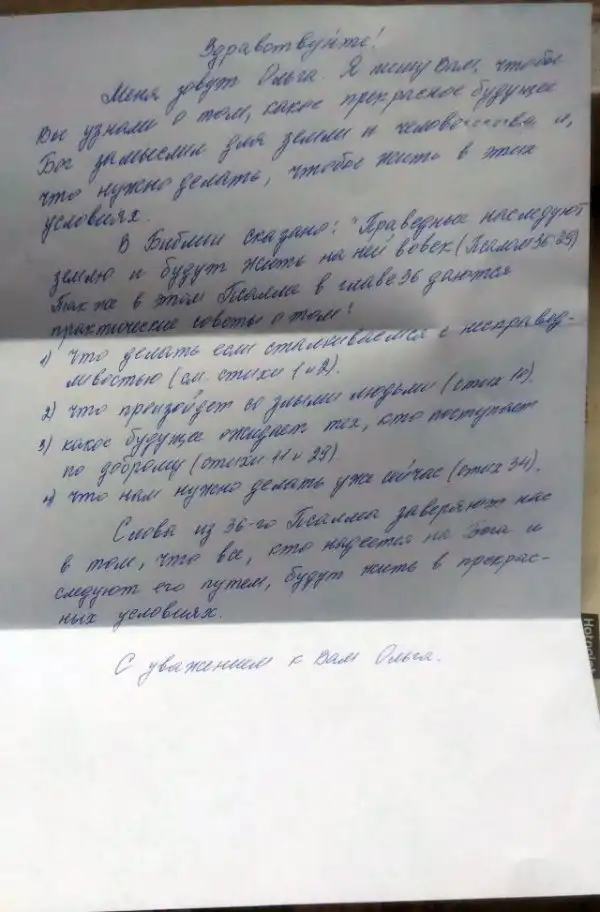 Здравствуйте!
Меня зовут Ольга. Я пишу Вам, чтобы
Вы узнали о том, какое прекрасное будущее
Бог замыслил для земли и человечества и,
что нужно делать, чтобы жить в этих
условиях.
В Библии сказано: "Праведные наследуют
землю и будут жить на ней вовек (Псалом 36:29)
Также в этом Псалме в главе 36 даются
практические советы о том:
1) что делать если сталкиваемся с несправед-
ливостью (см. стихи 1 и 2).
2) что произойдет со злыми людьми (стих 10).
3) какое будущее ожидает тех, кто поступает
по доброму (стихи 11 и 29)
4) что нам нужно делать уже сейчас (стих 34).
Слова из 36-го Псалма заверяют нас
в том, что все, кто надеется на Бога и
следуют его путем, будут жить в прекрас-
ных условиях.
С уважением к Вам Ольга.